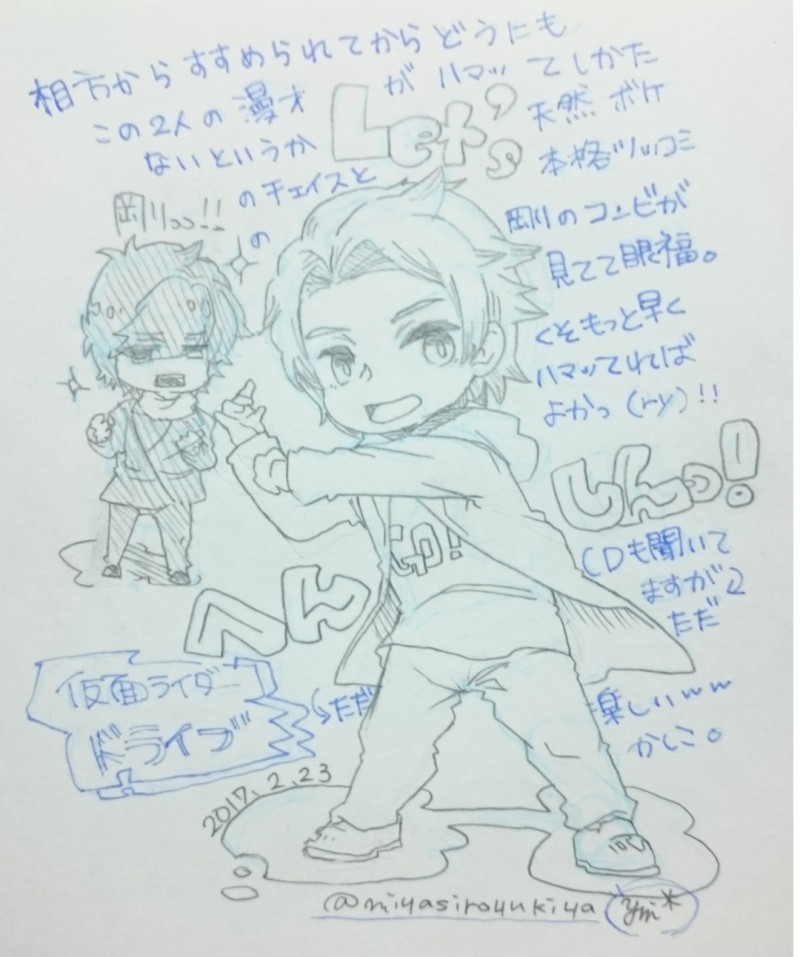 相方からすすめられてからどうにも
この2人の漫才がハマッてしかた
ないというか
天然ボケ
のチェイスと
本格ツッコミ
の
剛のコンビが
見てて眼福。
くそもっと早く
ハマッてれば
よかっ(ry)!!
Let's
へん
しんっ!
CDも聞いて
ますが2
ただ
↳ただ
楽しいww
かしこ。
仮面ライダー
ドライブ
2017.2.23
@miyasiroyukiya
ym*